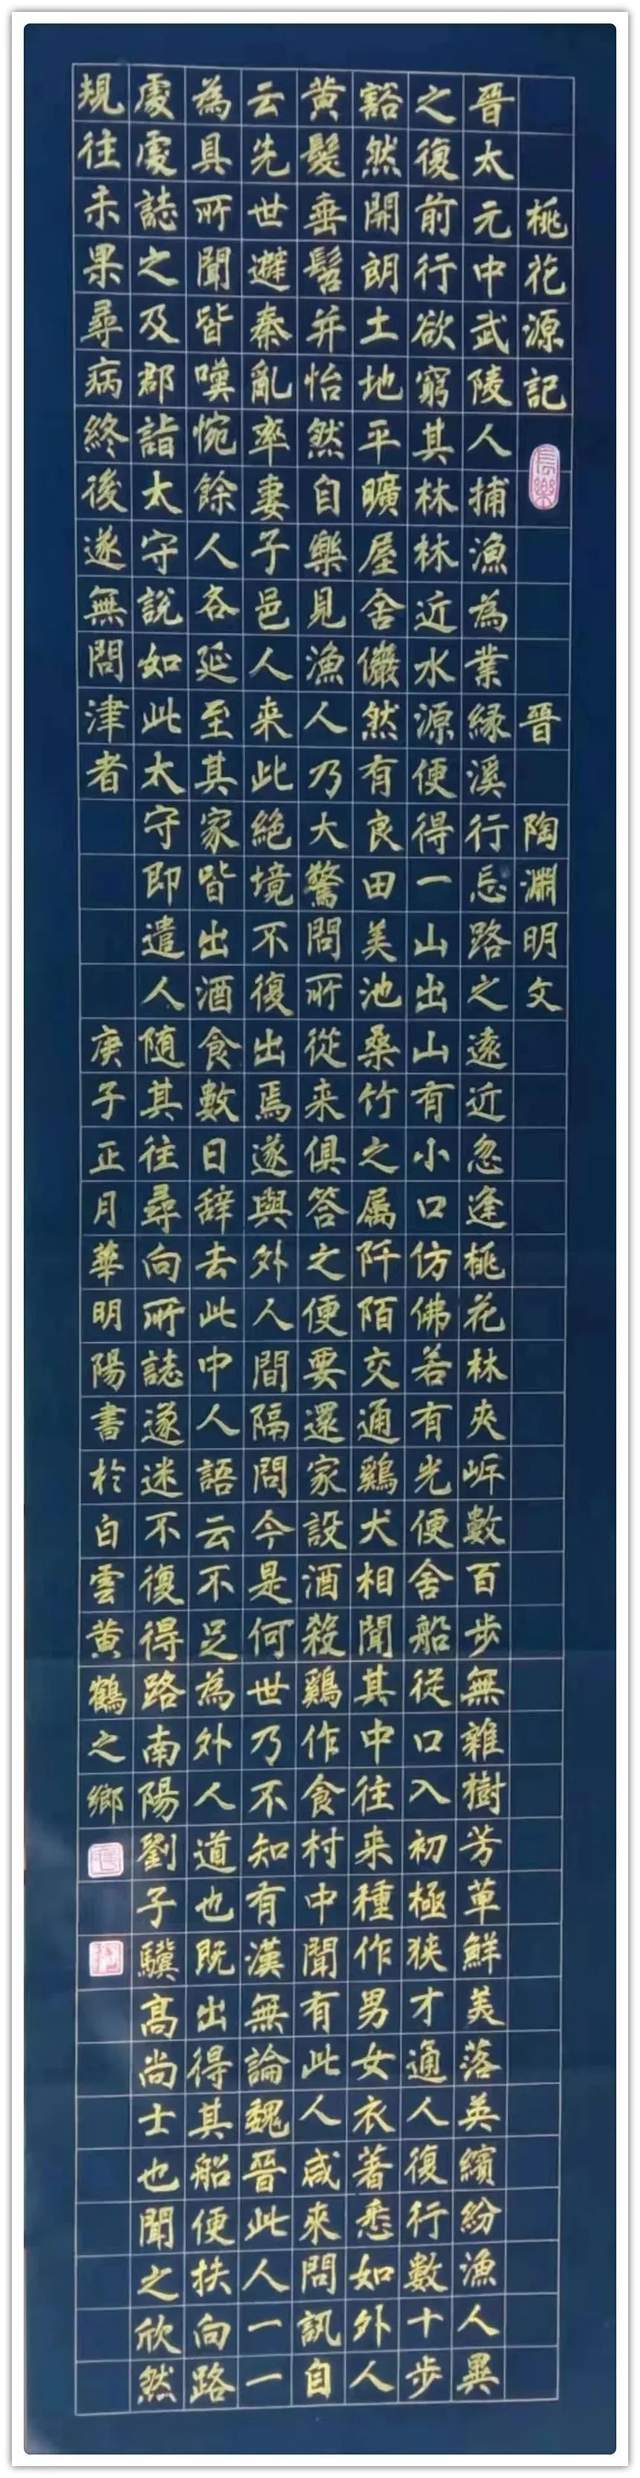 桃花源記 長樂 晉 陶淵明文
晉太元中武陵人捕漁為業緣溪行忘路之遠近忽逢桃花林夾岸數百步無雜樹芳草鮮美落英繽紛漁人異
之復前行欲窮其林林近水源便得一山出山有小口仿佛若有光便舍船從口入初極狹才通人復行數十步
豁然開朗土地平曠屋舍儼然有良田美池桑竹之属阡陌交通鷄犬相聞其中往来種作男女衣著悉如外人
黄髮垂髫并怡然自樂見漁人乃大驚問所從来俱答之便要還家設酒殺鷄作食村中聞有此人咸來問訊自
云先世避秦亂率妻子邑人来此絶境不復出焉遂與外人間隔問今是何世乃不知有漢無論魏晉此人一一
為具所聞皆嘆惋餘人各延至其家皆出酒食數日辞去此中人語云不足為外人道也既出得其船便扶向路
處處誌之及郡詣太守說如此太守即遣人随其往尋向所誌遂迷不復得路南陽劉子驥高尚士也聞之欣然
規往未果尋病終後遂無問津者 庚子正月華明陽書於白雲黄鶴之鄉